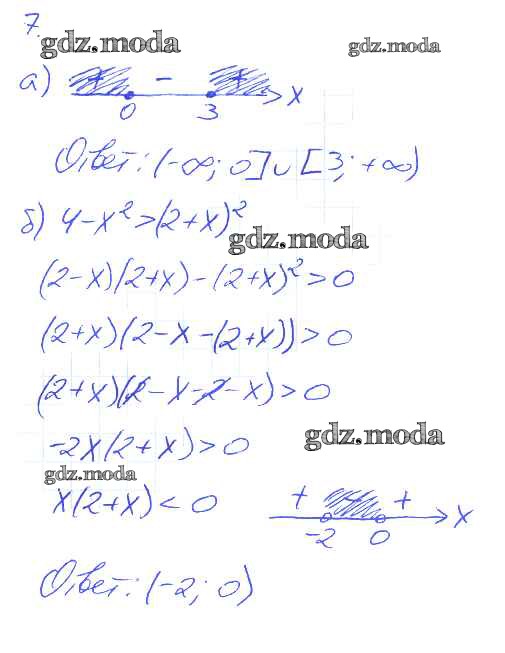 7.
gdz.moda
gdz.moda
а) + - + x
0 3
Ответ: (-∞; 0] ∪ [3; +∞)
б) 4-x²>(2+x)²
gdz.moda
(2-x)(2+x)-(2+x)²>0
(2+x)(2-x-(2+x))>0
(2+x)(2-x-2-x)>0
-2x(2+x)>0
gdz.moda
gdz.moda
x(2+x)<0
+ + x
-2 0
Ответ: (-2; 0)